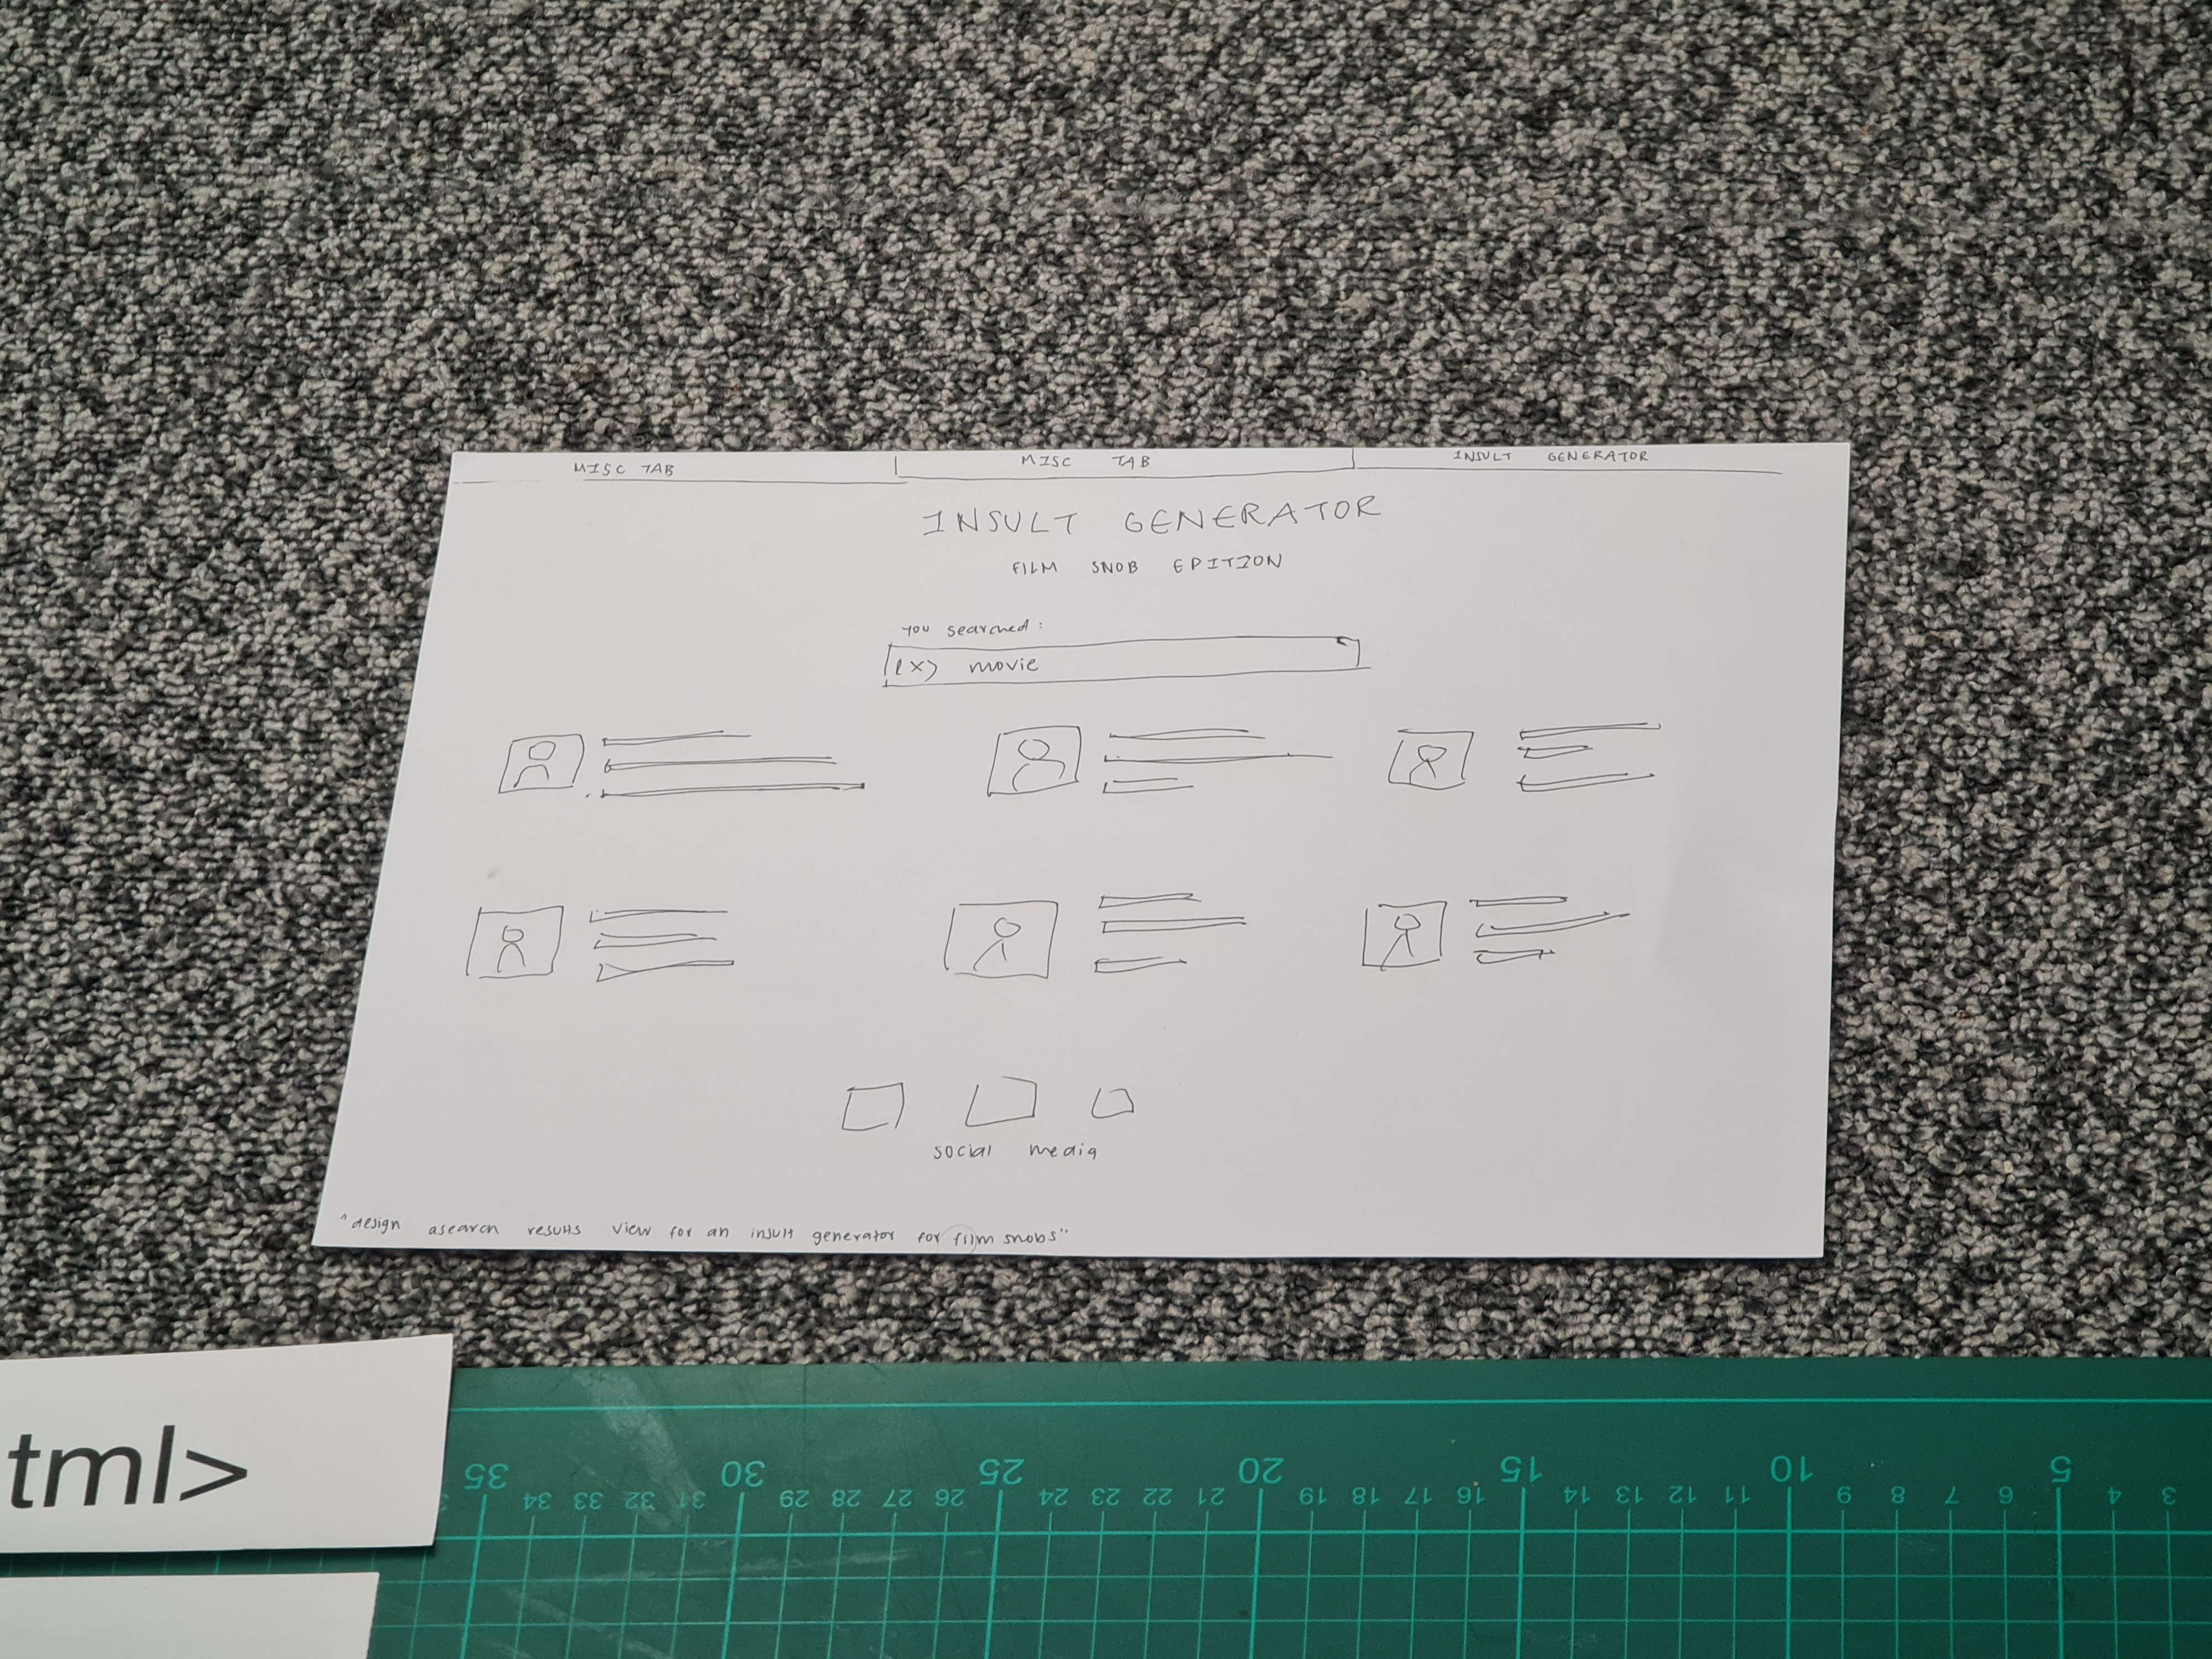 MISC TAB
MISC TAB
INSULT GENERATOR
INSULT GENERATOR
FILM SNOB EDITION
You searched:
(X) movie
social media
"design asearch results view for an insult generator for film snobs"
tml>
35 30 25 20 15 10 5
34 33 32 31 29 28 27 26 24 23 22 21 19 18 17 16 14 13 12 11 9 8 7 6 4 3